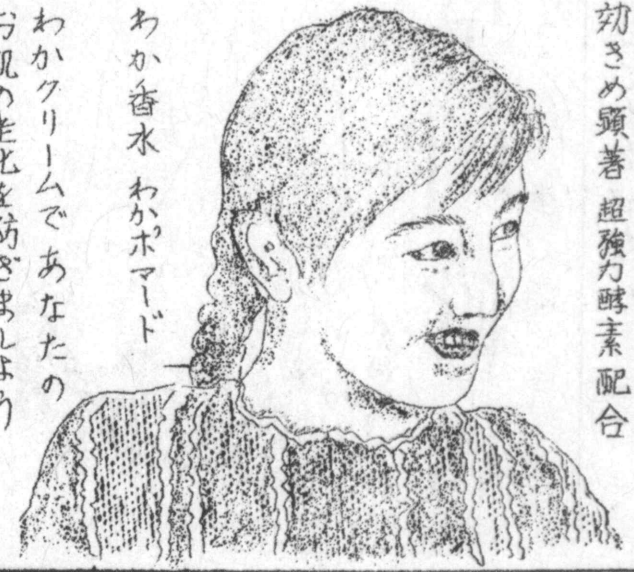 効きめ顕著 超強力酵素配合
わか香水 わかポマード
わかクリームで あなたの
お肌の老化を防ぎましょう